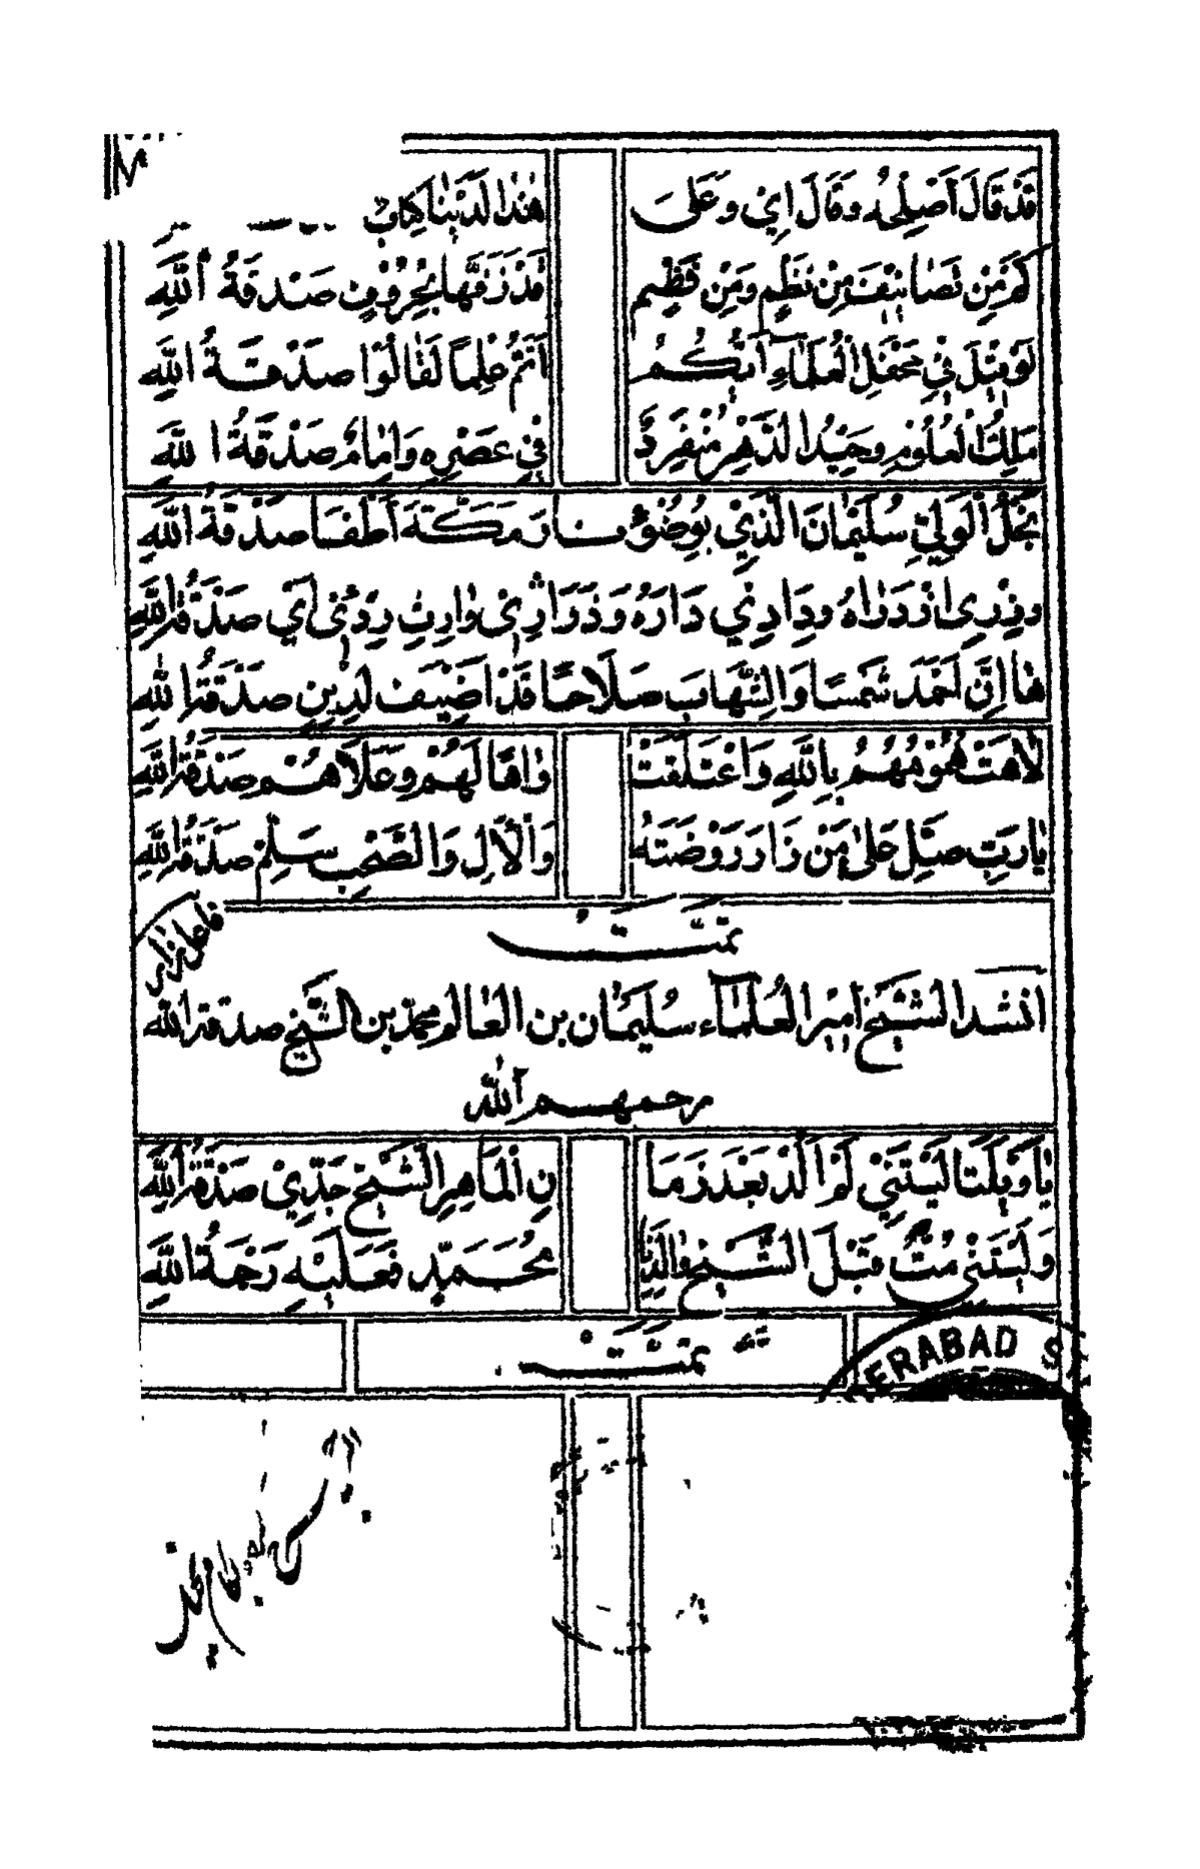 قَدْ قَالَ أَصْلِحْهُ وَقَالَ اِيْ وَعَلَىَ هٰذَا لَدَيْنَا كِتَابْ
كَمْ مِنْ تَصَانِيْفَ مِنْ نَظْمٍ وَمِنْ قَدْ زَفَّهَا بِحُرُوْفٍ صَدَقَةُ اللّٰهِ
لَوْ قِيْلَ فِيْ مَحْفَلِ الْعُلَمَاءِ اَيُّكُمُ اَتَمُّ عِلْمًا لَقَالُوْا صَدَقَةُ اللّٰهِ
مَلِكُ الْعُلُوْمِ وَحِيْدُ الدَّهْرِ مُنْفَرِدٌ فِيْ عَصْرِهِ وَاِمَامٌ صَدَقَةُ اللّٰهِ
نَجْلُ الْوَلِيِّ سُلَيْمَانَ الَّذِيْ بِوُضُوْءٍ نَارَ مَكَّةَ اَطْفَا صَدَقَةُ اللّٰهِ
وَدَادِنِي دَارَهُ اَيْ صَدَقَةُ اللّٰهِ
هَا اِنَّ اَحْمَدَ شَمْسًا وَالشِّهَابَ صَلَاحًا قَدْ اُضِيْفَ لِدِيْنِ صَدَقَةُ اللّٰهِ
لَاهَتْ هُمُوْمُهُمْ بِاللّٰهِ وَاعْتَلَقَتْ وَاهًا لَهُمْ وَعَلَاهُمْ صَدَقَةُ اللّٰهِ
يَارَبِّ صَلِّ عَلٰى مَنْ زَارَ رَوْضَتَهُ وَالْاٰلِ وَالصَّحْبِ سَلِّمْ صَدَقَةُ اللّٰهِ
تمَّتْ
انشد الشيخ امير العُلَمَاء سُلَيْمَان بن العَالم محمّد بن الشّيخ صدقة الله
رحمهم الله
يَا وَيْلَتَا لَيْتَنِيْ لَمْ اُلَدْ بَعْدَ زَمَا نِ الْمَاهِرِ الشَّيْخِ جَدِّيْ صَدَقَةُ اللّٰهِ
وَلَيْتَنِيْ مُتُّ قَبْلَ الشَّيْخِ وَالِدِنَا مُحَمَّدٍ فَعَلَيْهِ رَحْمَةُ اللّٰهِ
تمَّتْ
ERABAD S